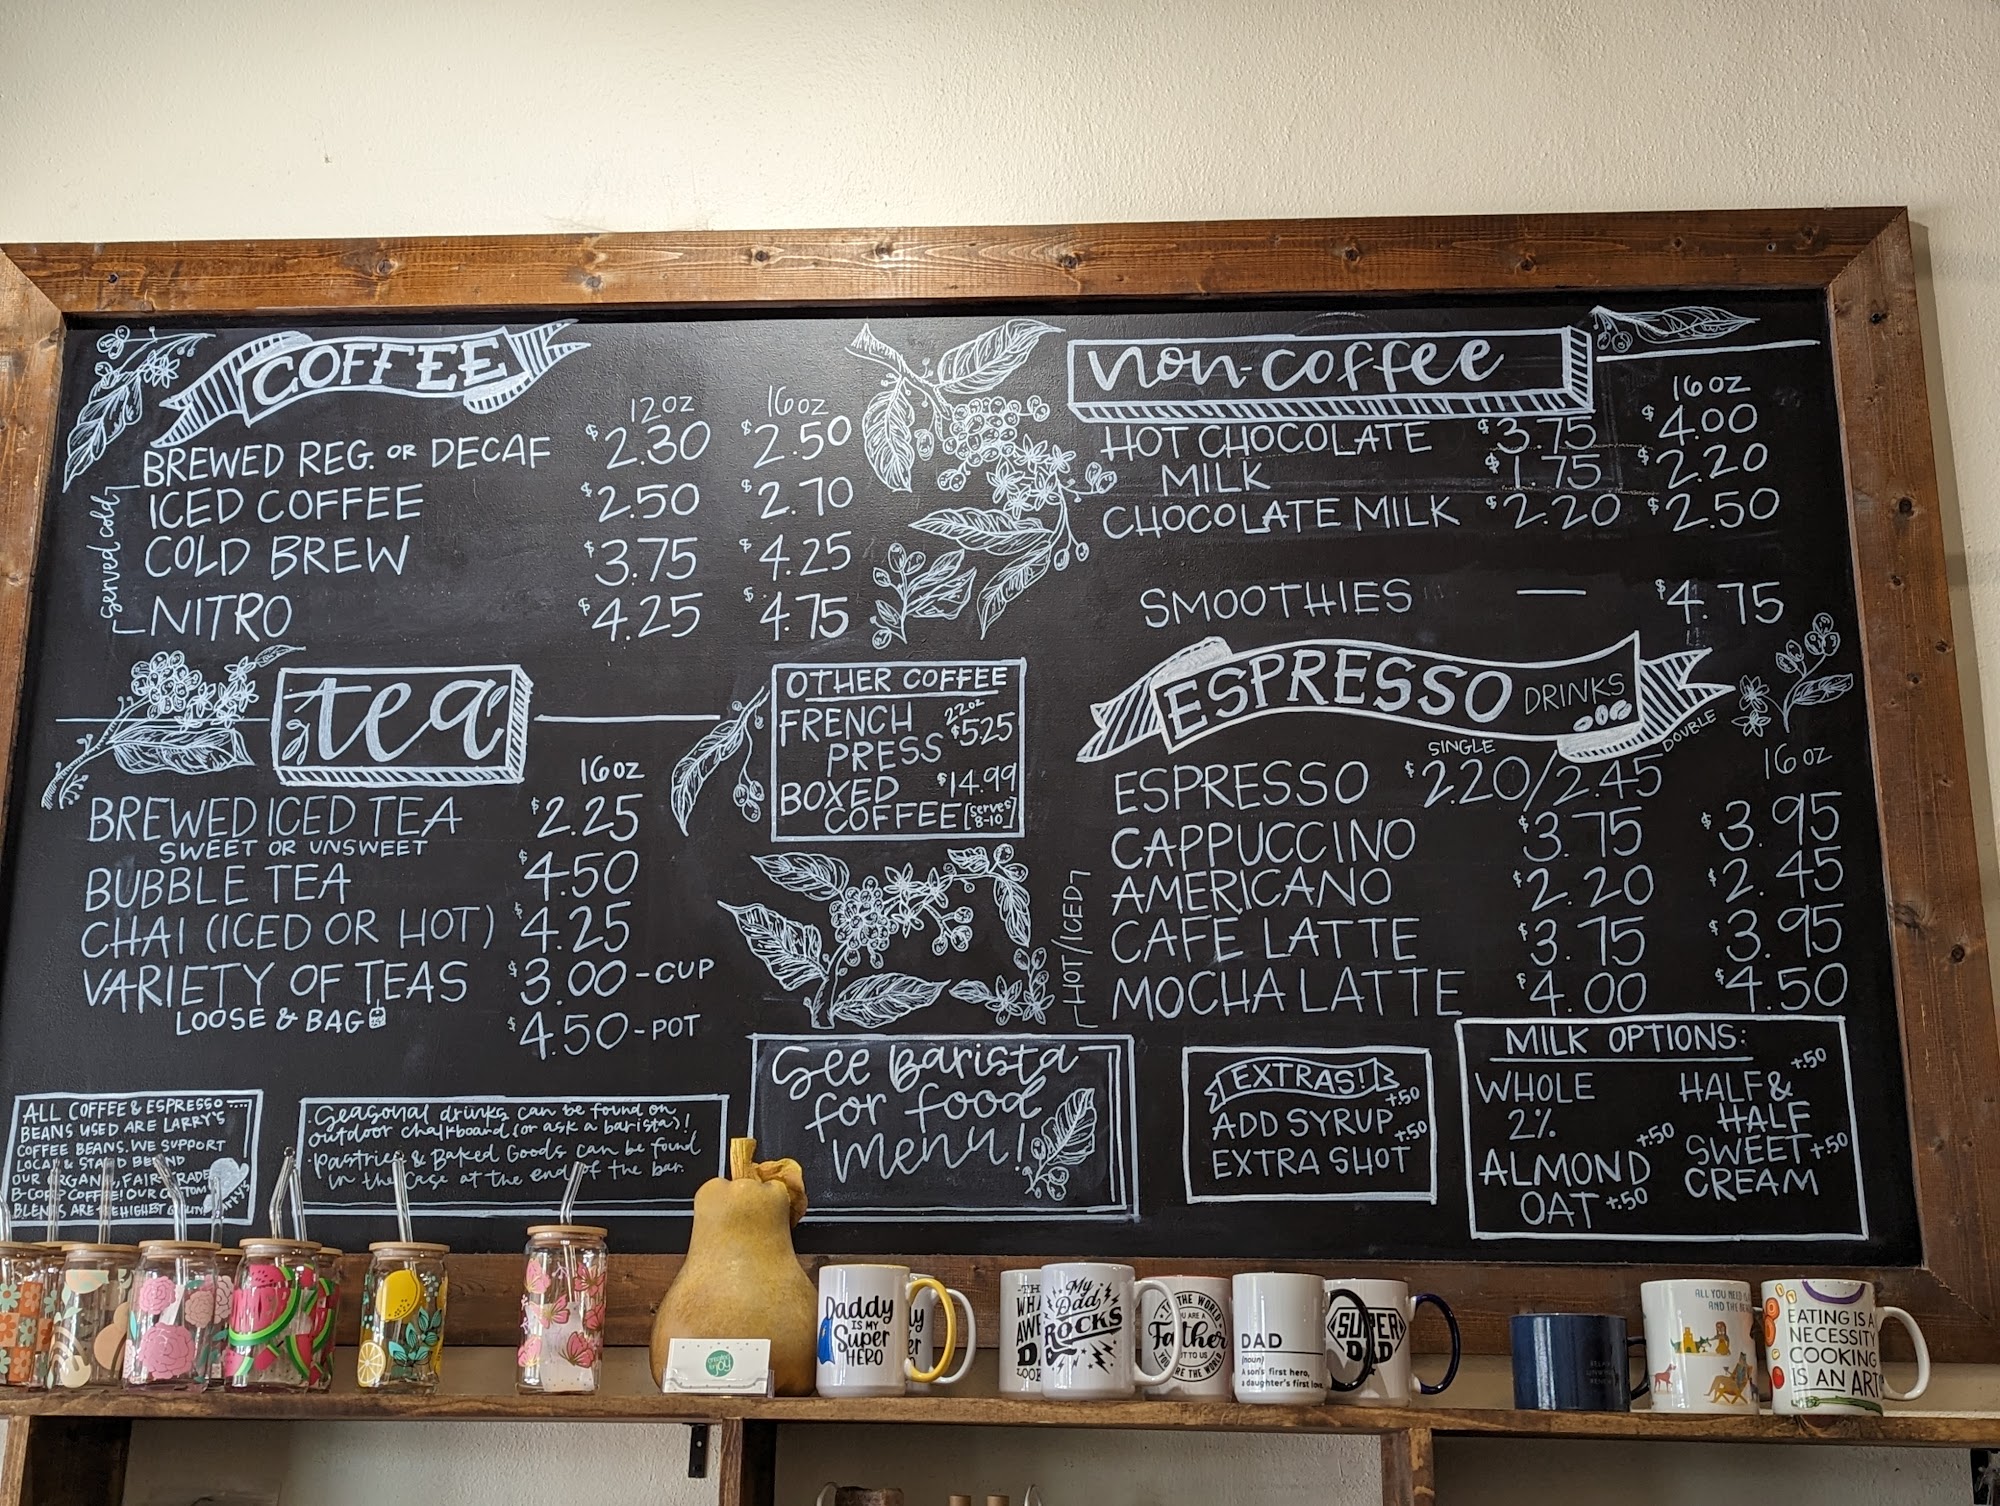 COFFEE
12oz 16oz
BREWED REG. OR DECAF $2.30 $2.50
ICED COFFEE $2.50 $2.70
COLD BREW $3.75 $4.25
NITRO $4.25 $4.75
served cold
tea
16oz
BREWED ICED TEA $2.25
SWEET OR UNSWEET
BUBBLE TEA $4.50
CHAI (ICED OR HOT) $4.25
VARIETY OF TEAS $3.00 - CUP
LOOSE & BAG $4.50 - POT
OTHER COFFEE
FRENCH 22oz
PRESS $5.25
BOXED $14.99
COFFEE [serves
8-10]
non-coffee
16oz
HOT CHOCOLATE $3.75 $4.00
MILK $1.75 $2.20
CHOCOLATE MILK $2.20 $2.50
SMOOTHIES — $4.75
ESPRESSO DRINKS
SINGLE DOUBLE 16oz
ESPRESSO $2.20/2.45
CAPPUCCINO $3.75 $3.95
AMERICANO $2.20 $2.45
CAFÉ LATTE $3.75 $3.95
MOCHA LATTE $4.00 $4.50
HOT/ICED
ALL COFFEE & ESPRESSO
BEANS USED ARE LARRY'S
COFFEE BEANS. WE SUPPORT
LOCAL & STAND BEHIND
OUR ORGANIC, FAIR TRADE
B-CORP COFFEE! OUR CUSTOM
BLENDS ARE THE HIGHEST QUALITY
Seasonal drinks can be found on
outdoor chalkboard (or ask a barista)!
Pastries & Baked Goods can be found
in the case at the end of the bar.
See Barista
for food
menu!
EXTRAS!
ADD SYRUP +.50
EXTRA SHOT +.50
MILK OPTIONS:
WHOLE
2%
ALMOND +.50
OAT +.50
HALF & +.50
HALF
SWEET +.50
CREAM
Daddy
IS MY
Super
HERO
WHA
AWE
My
Dad
ROCKS
TO THE WORLD
YOU ARE A
Father
BUT TO US
YOU'RE THE WORLD
DAD
(noun)
A son's first hero,
a daughter's first love.
SUPER
DAD
ALL YOU NEED
AND THE
EATING IS A
NECESSITY
COOKING
IS AN ART